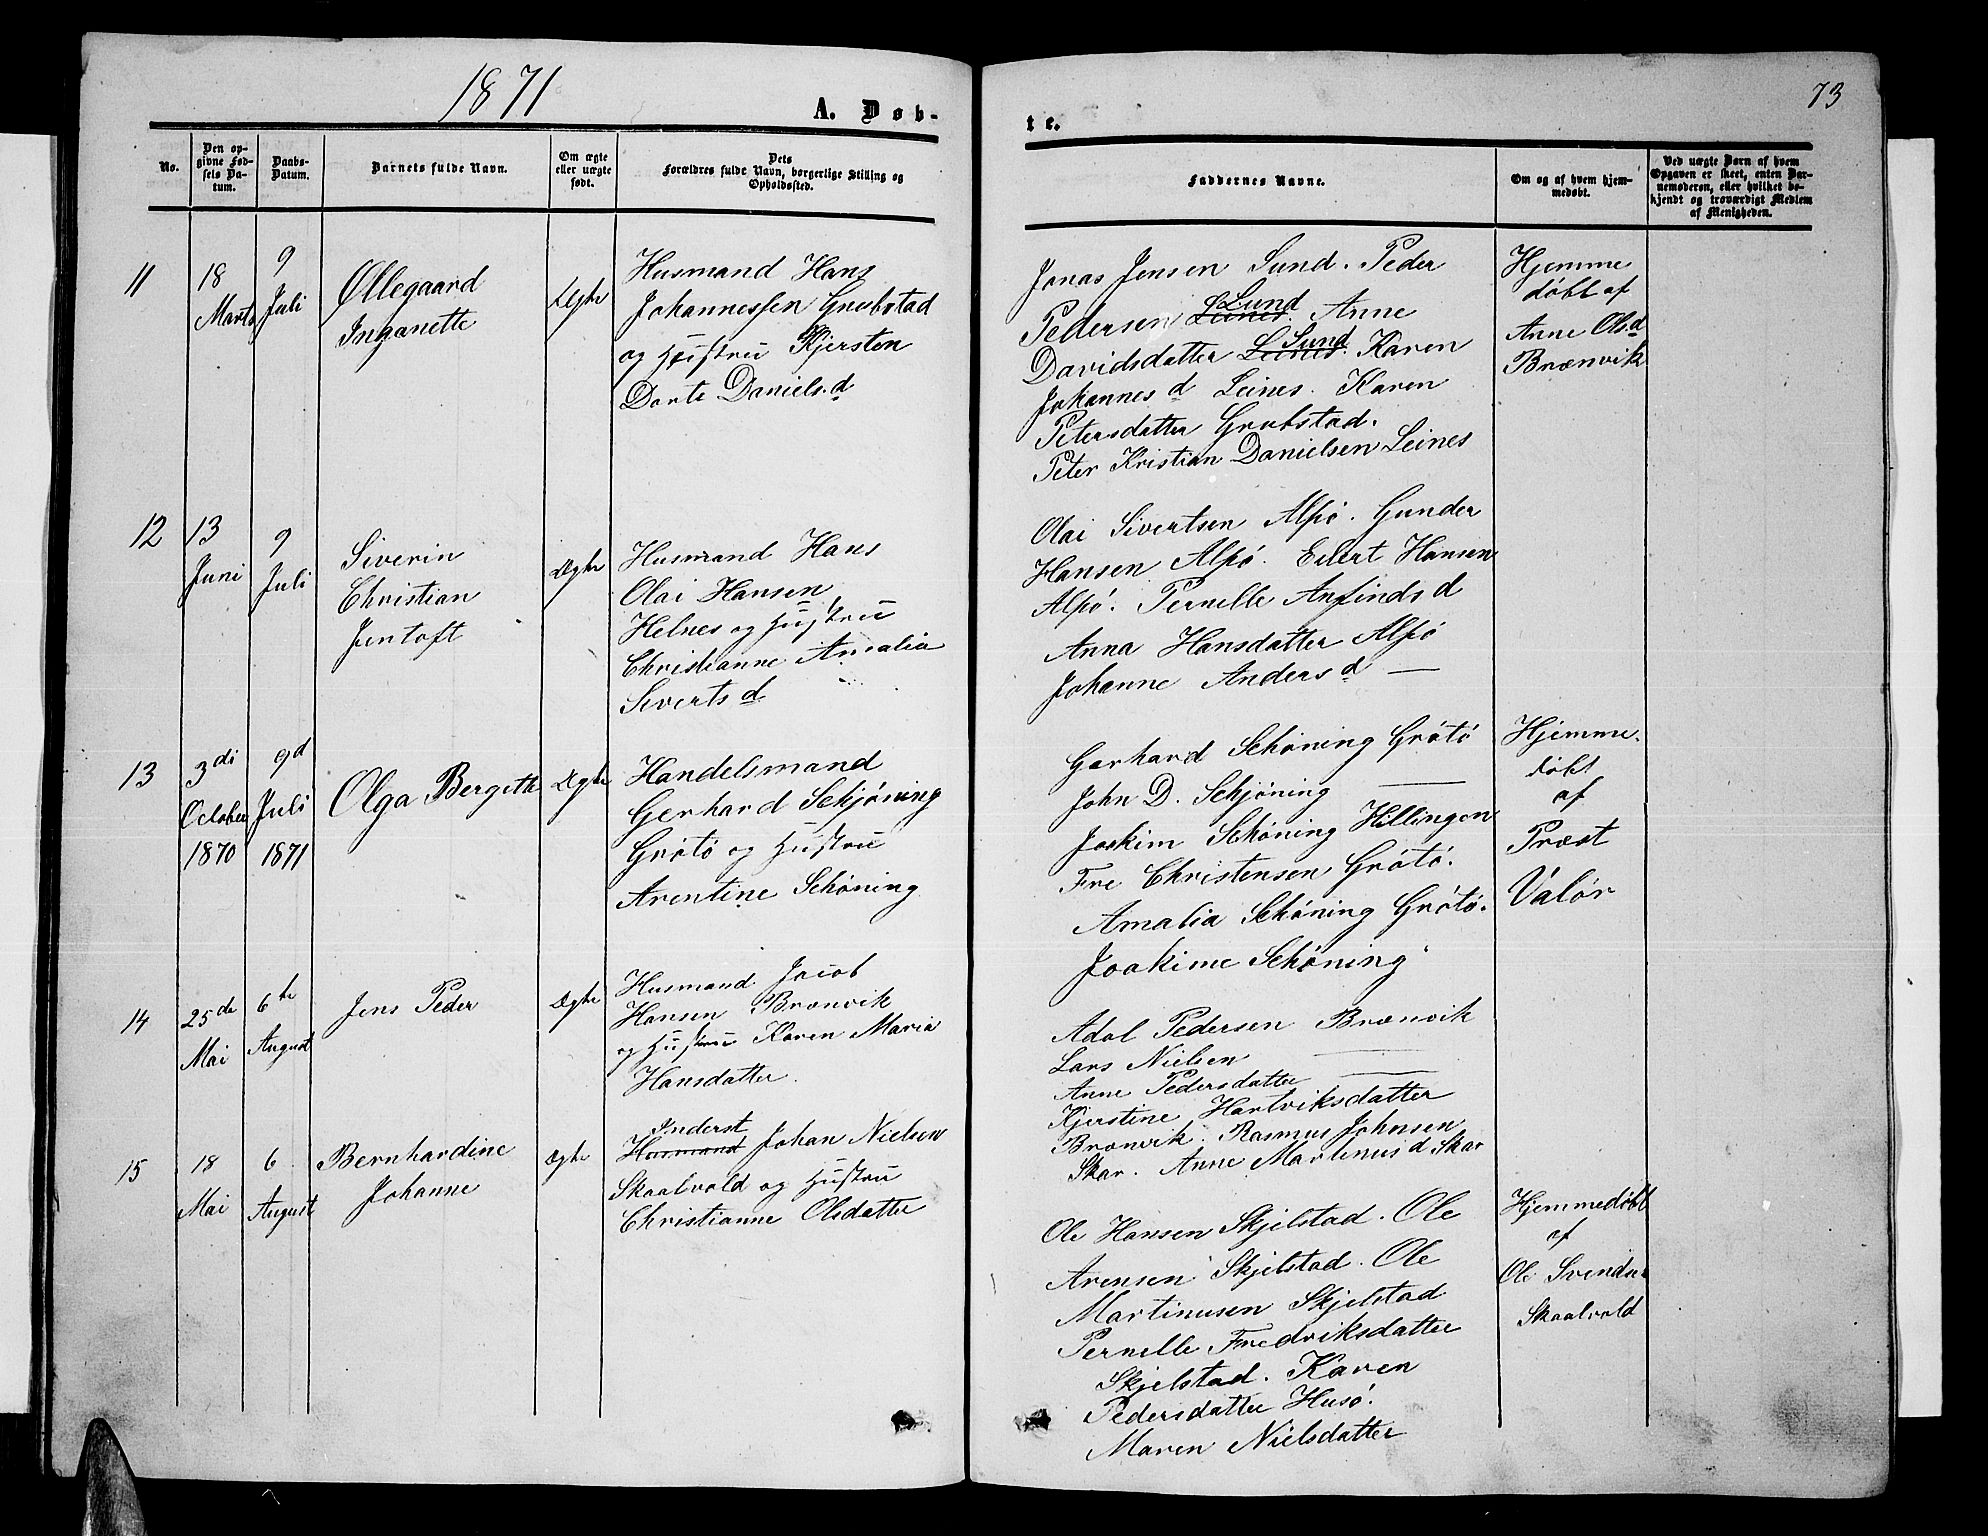 1871
73
A. Døb-
te.
No.
Den op-
givne Fød-
sels Da-
tum.
Daabs-
Datum.
Barnets fulde Navn.
Om ægte
eller uægte
født.
Dets
Forældres fulde Navn, borgerlige Stilling og
Opholdssted.
Faddernes Navne.
Om og af hvem hjem-
medøbt.
Ved uægte Børn af hvem
Opgaven er skeet, enten Bar-
nemoderen, eller hvilket be-
kjendt og troværdigt Medlem
af Menigheden.
11
18
Marts
9
Juli
Øllegaard
Inganette
Ægte
Husmand Hans
Johannessen Grubstad
og Hustru Kjersten
Dorte Daniels.d
Jonas Jensen Sund. Peder
Pedersen Leines Lund. Anne
Davidsdatter Leines Sund. Karen
Johannes d Leines. Karen
Petersdatter Grubstad.
Peter Kristian Danielsen Leines
Hjemme
døbt af
Anne Olsd
Brænvik
12
13
Juni
9
Juli
Siverin
Christian
Jentoft
Ægte
Husmand Hans
Olai Hansen
Helnes og Hustru
Christianne Amalia
Siverts d
Olai Sivertsen Alpø. Gunder
Hansen Alpø. Eilert Hansen
Alpø. Pernelle Anfinds d
Anna Hansdatter Alpø
Johanne Anders d —
13
3di
October
1870
9d
Juli
1871
Olga Bergith
Ægte
Handelsmand
Gerhard Schjøning
Grøtø og Hustru
Arentine Schøning
Gerhard Schøning Grøtø
John D. Schjøning —
Joakim Schøning Hillingen
Fre Christensen Grøtø.
Amalia Schøning Grøtø.
Joakime Schøning "
Hjemme.
døbt
af
Præst
Valør
14
25de
Mai
6te
August
Jens Peder
Ægte
Husmand Jacob
Hansen Brænvik
og Hustru Karen Maria
Hansdatter.
Adol Pedersen Brænvik
Lars Nielsen —
Anne Pedersdatter —
Kjerstine Hartviksdatter
Brænvik. Rasmus Johnsen
Skar. Anne Martinus d Skar
15
18
Mai
6
August
Bernhardine
Johanne
Ægte
Inderst
Husmand Johan Nielsen
Skaalvold og Hustru
Christianne Olsdatter
Ole Hansen Skjelstad. Ole
Arensen Skjelstad. Ole
Martinusen Skjelstad
Pernelle Fredriksdatter
Skjelstad. Karen
Pedersdatter Husø.
Maren Nielsdatter
Hjemmedøbt
af
Ole Svendsen
Skaalvold